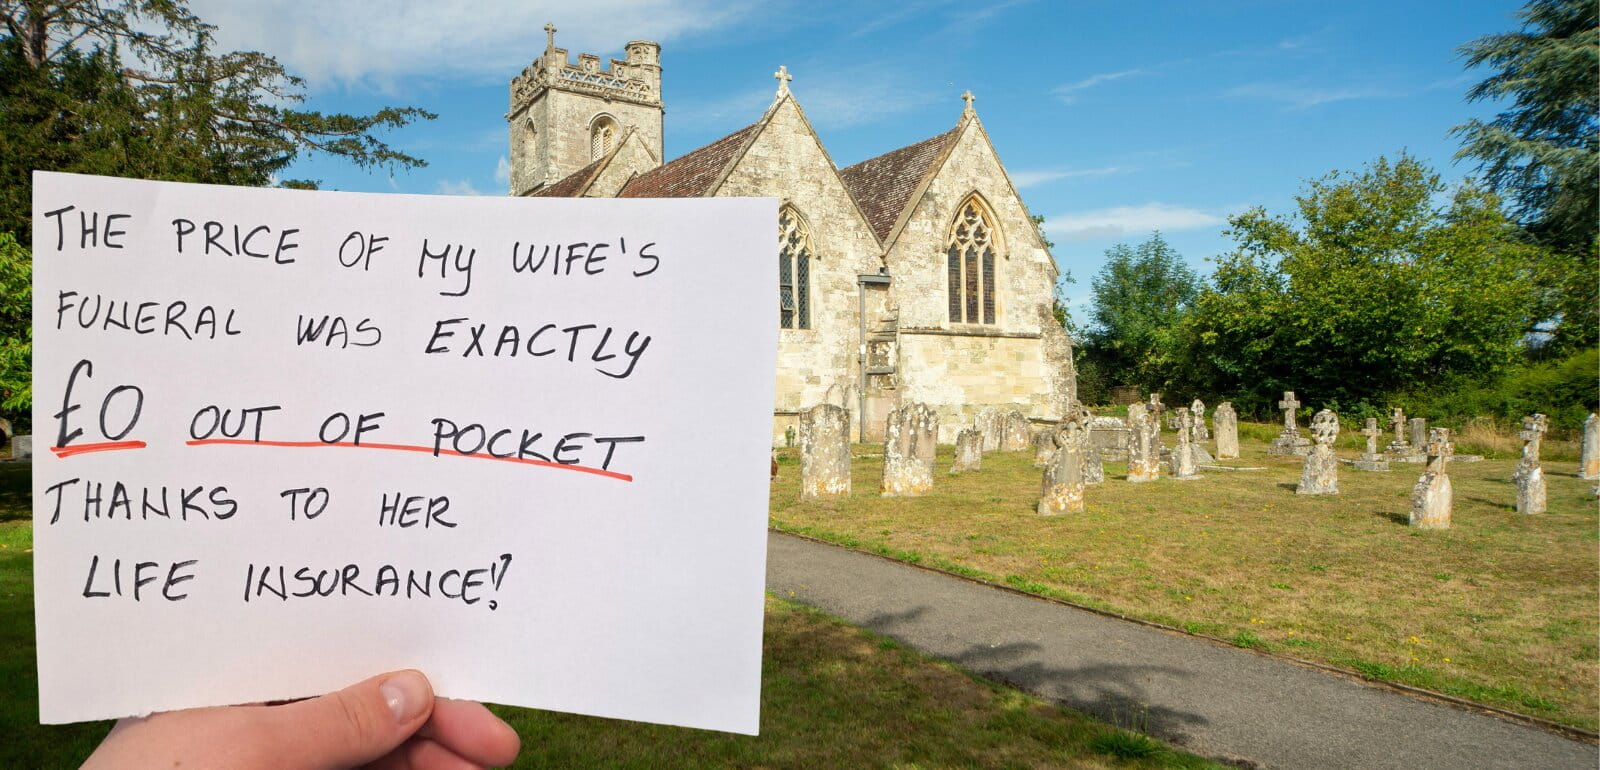 THE PRICE OF MY WIFE'S
FUNERAL WAS EXACTLY
£0 OUT OF POCKET
THANKS TO HER
LIFE INSURANCE!!